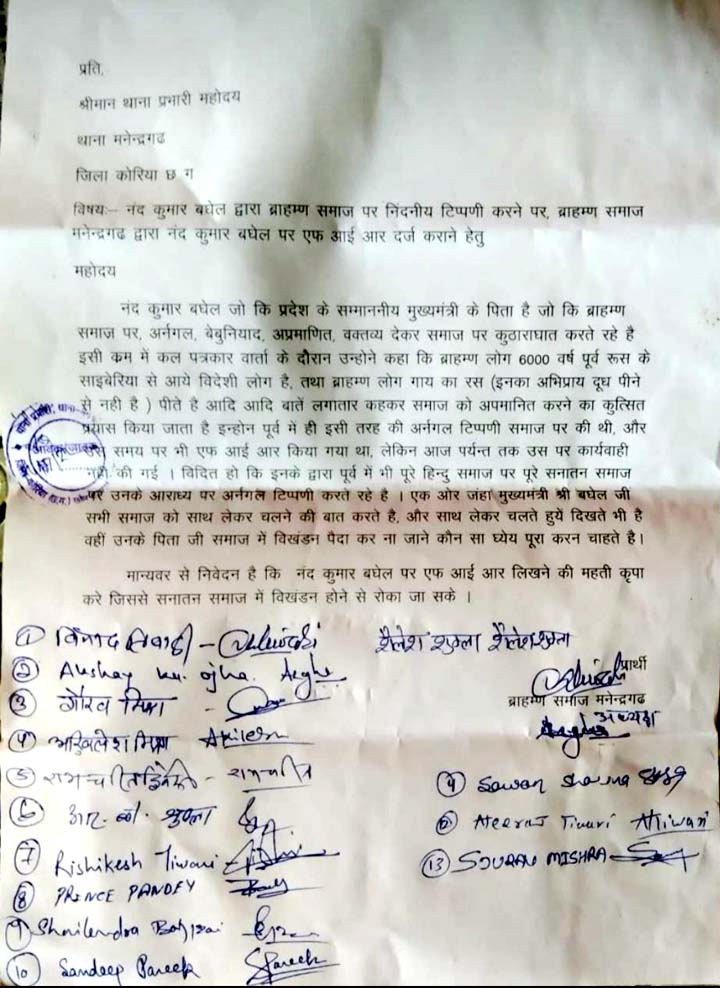 प्रति,
श्रीमान थाना प्रभारी महोदय
थाना मनेन्द्रगढ
जिला कोरिया छ ग
विषयः– नंद कुमार बघेल द्वारा ब्राहम्ण समाज पर निंदनीय टिप्पणी करने पर, ब्राहम्ण समाज
मनेन्द्रगढ द्वारा नंद कुमार बघेल पर एफ आई आर दर्ज कराने हेतु
महोदय
नंद कुमार बघेल जो कि प्रदेश के सम्माननीय मुख्यमंत्री के पिता है जो कि ब्राहम्ण
समाज पर, अर्नगल, बेबुनियाद, अप्रमाणित, वक्तव्य देकर समाज पर कुठाराघात करते रहे है
इसी कम में कल पत्रकार वार्ता के दौरान उन्होने कहा कि ब्राहम्ण लोग 6000 वर्ष पूर्व रूस के
साइबेरिया से आये विदेशी लोग है, तथा ब्राहम्ण लोग गाय का रस (इनका अभिप्राय दूध पीने
से नही है ) पीते है आदि आदि बातें लगातार कहकर समाज को अपमानित करने का कुत्सित
प्रयास किया जाता है इन्होन पूर्व में ही इसी तरह की अर्नगल टिप्पणी समाज पर की थी, और
उस समय पर भी एफ आई आर किया गया था, लेकिन आज पर्यन्त तक उस पर कार्यवाही
नही की गई । विदित हो कि इनके द्वारा पूर्व में भी पूरे हिन्दु समाज पर पूरे सनातन समाज
पर उनके आराध्य पर अर्नगल टिप्पणी करते रहे है । एक ओर जंहा मुख्यमंत्री श्री बघेल जीं
सभी समाज को साथ लेकर चलने की बात करते है, और साथ लेकर चलते हुयें दिखते भी है
वहीं उनके पिता जी समाज में विखंडन पैदा कर ना जाने कौन सा घ्येय पूरा करन चाहते है।
मान्यवर से निवेदन है कि नंद कुमार बघेल पर एफ आई आर लिखने की महती कृपा
करे जिससे सनातन समाज में विखंडन होने से रोका जा सके ।
① विनोद तिवारी - शैलेश शुक्ला शैलेश शुक्ला
② Akshay ku. ojha.
प्रार्थी
③ गौरव मिश्रा -
ब्राहम्ण समाज मनेन्द्रगढ
अध्यक्ष
④ अखिलेश मिश्रा Akilesh
⑤ रामचरित द्विवेदी - रामचरित
Sawan Sharma
⑥ आर. के. शुक्ला
Neeraj Tiwari ATiwari
⑦ Rishikesh Tiwari
⑬ SOURAV MISHRA
⑧ PRINCE PANDEY
⑨ Shailendra Bajpai
⑩ Sandeep Pareek SPareek